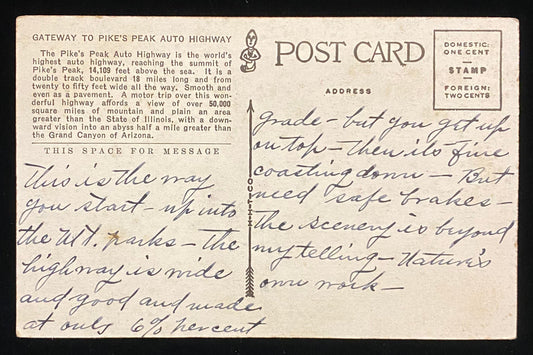 GATEWAY TO PIKE'S PEAK AUTO HIGHWAY
The Pike's Peak Auto Highway is the world's
highest auto highway, reaching the summit of
Pike's Peak, 14,109 feet above the sea. It is a
double track boulevard 18 miles long and from
twenty to fifty feet wide all the way. Smooth and
even as a pavement. A motor trip over this won-
derful highway affords a view of over 50,000
square miles of mountain and plain an area
greater than the State of Illinois, with a down-
ward vision into an abyss half a mile greater than
the Grand Canyon of Arizona.
THIS SPACE FOR MESSAGE
This is the way
you start - up into
the Mt. parks - the
highway is wide
and good and made
at only 6% percent
POST CARD
ADDRESS
DOMESTIC:
ONE CENT
STAMP
FOREIGN:
TWO CENTS
grade - but you get up
on top - then its fine
coasting down - But
need safe brakes -
the scenery is beyond
my telling - Nature's
own work -